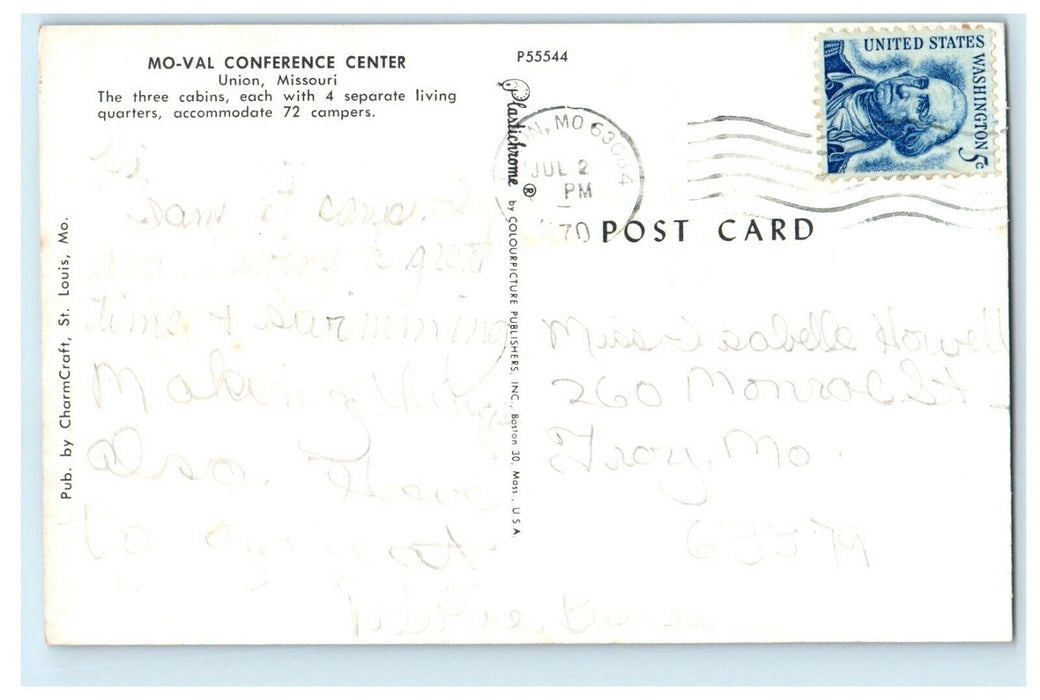 MO-VAL CONFERENCE CENTER
Union, Missouri
The three cabins, each with 4 separate living
quarters, accommodate 72 campers.
Pub. by CharmCraft, St. Louis, Mo.
P55544
Plastichrome ® by COLOURPICTURE PUBLISHERS, INC., Boston 30, Mass., U.S.A.
UNITED STATES
WASHINGTON 5c
ON, MO 63084
JUL 2
PM
70
POST CARD
Hi
at camp
great
time + swimming
Making things
also. I have
to
Miss Isabelle Howell
260 Monroe St
Troy, Mo.